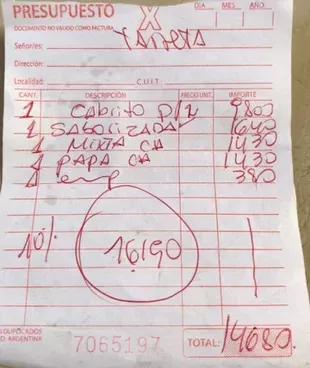 PRESUPUESTO X DIA MES AÑO
DOCUMENTO NO VALIDO COMO FACTURA
Señor/es: TARJETA
Dirección:
Localidad C.U.I.T.
CANT. DESCRIPCIÓN PRECIO UNIT. IMPORTE
1 CABRITO P/2 9800
1 SABORIZADA 1640
1 MIXTA CA 1430
1 PAPA CA 1430
1 380
10% 16190
DUPLICADOS
D. ARGENTINA
7065197
TOTAL: 14680.